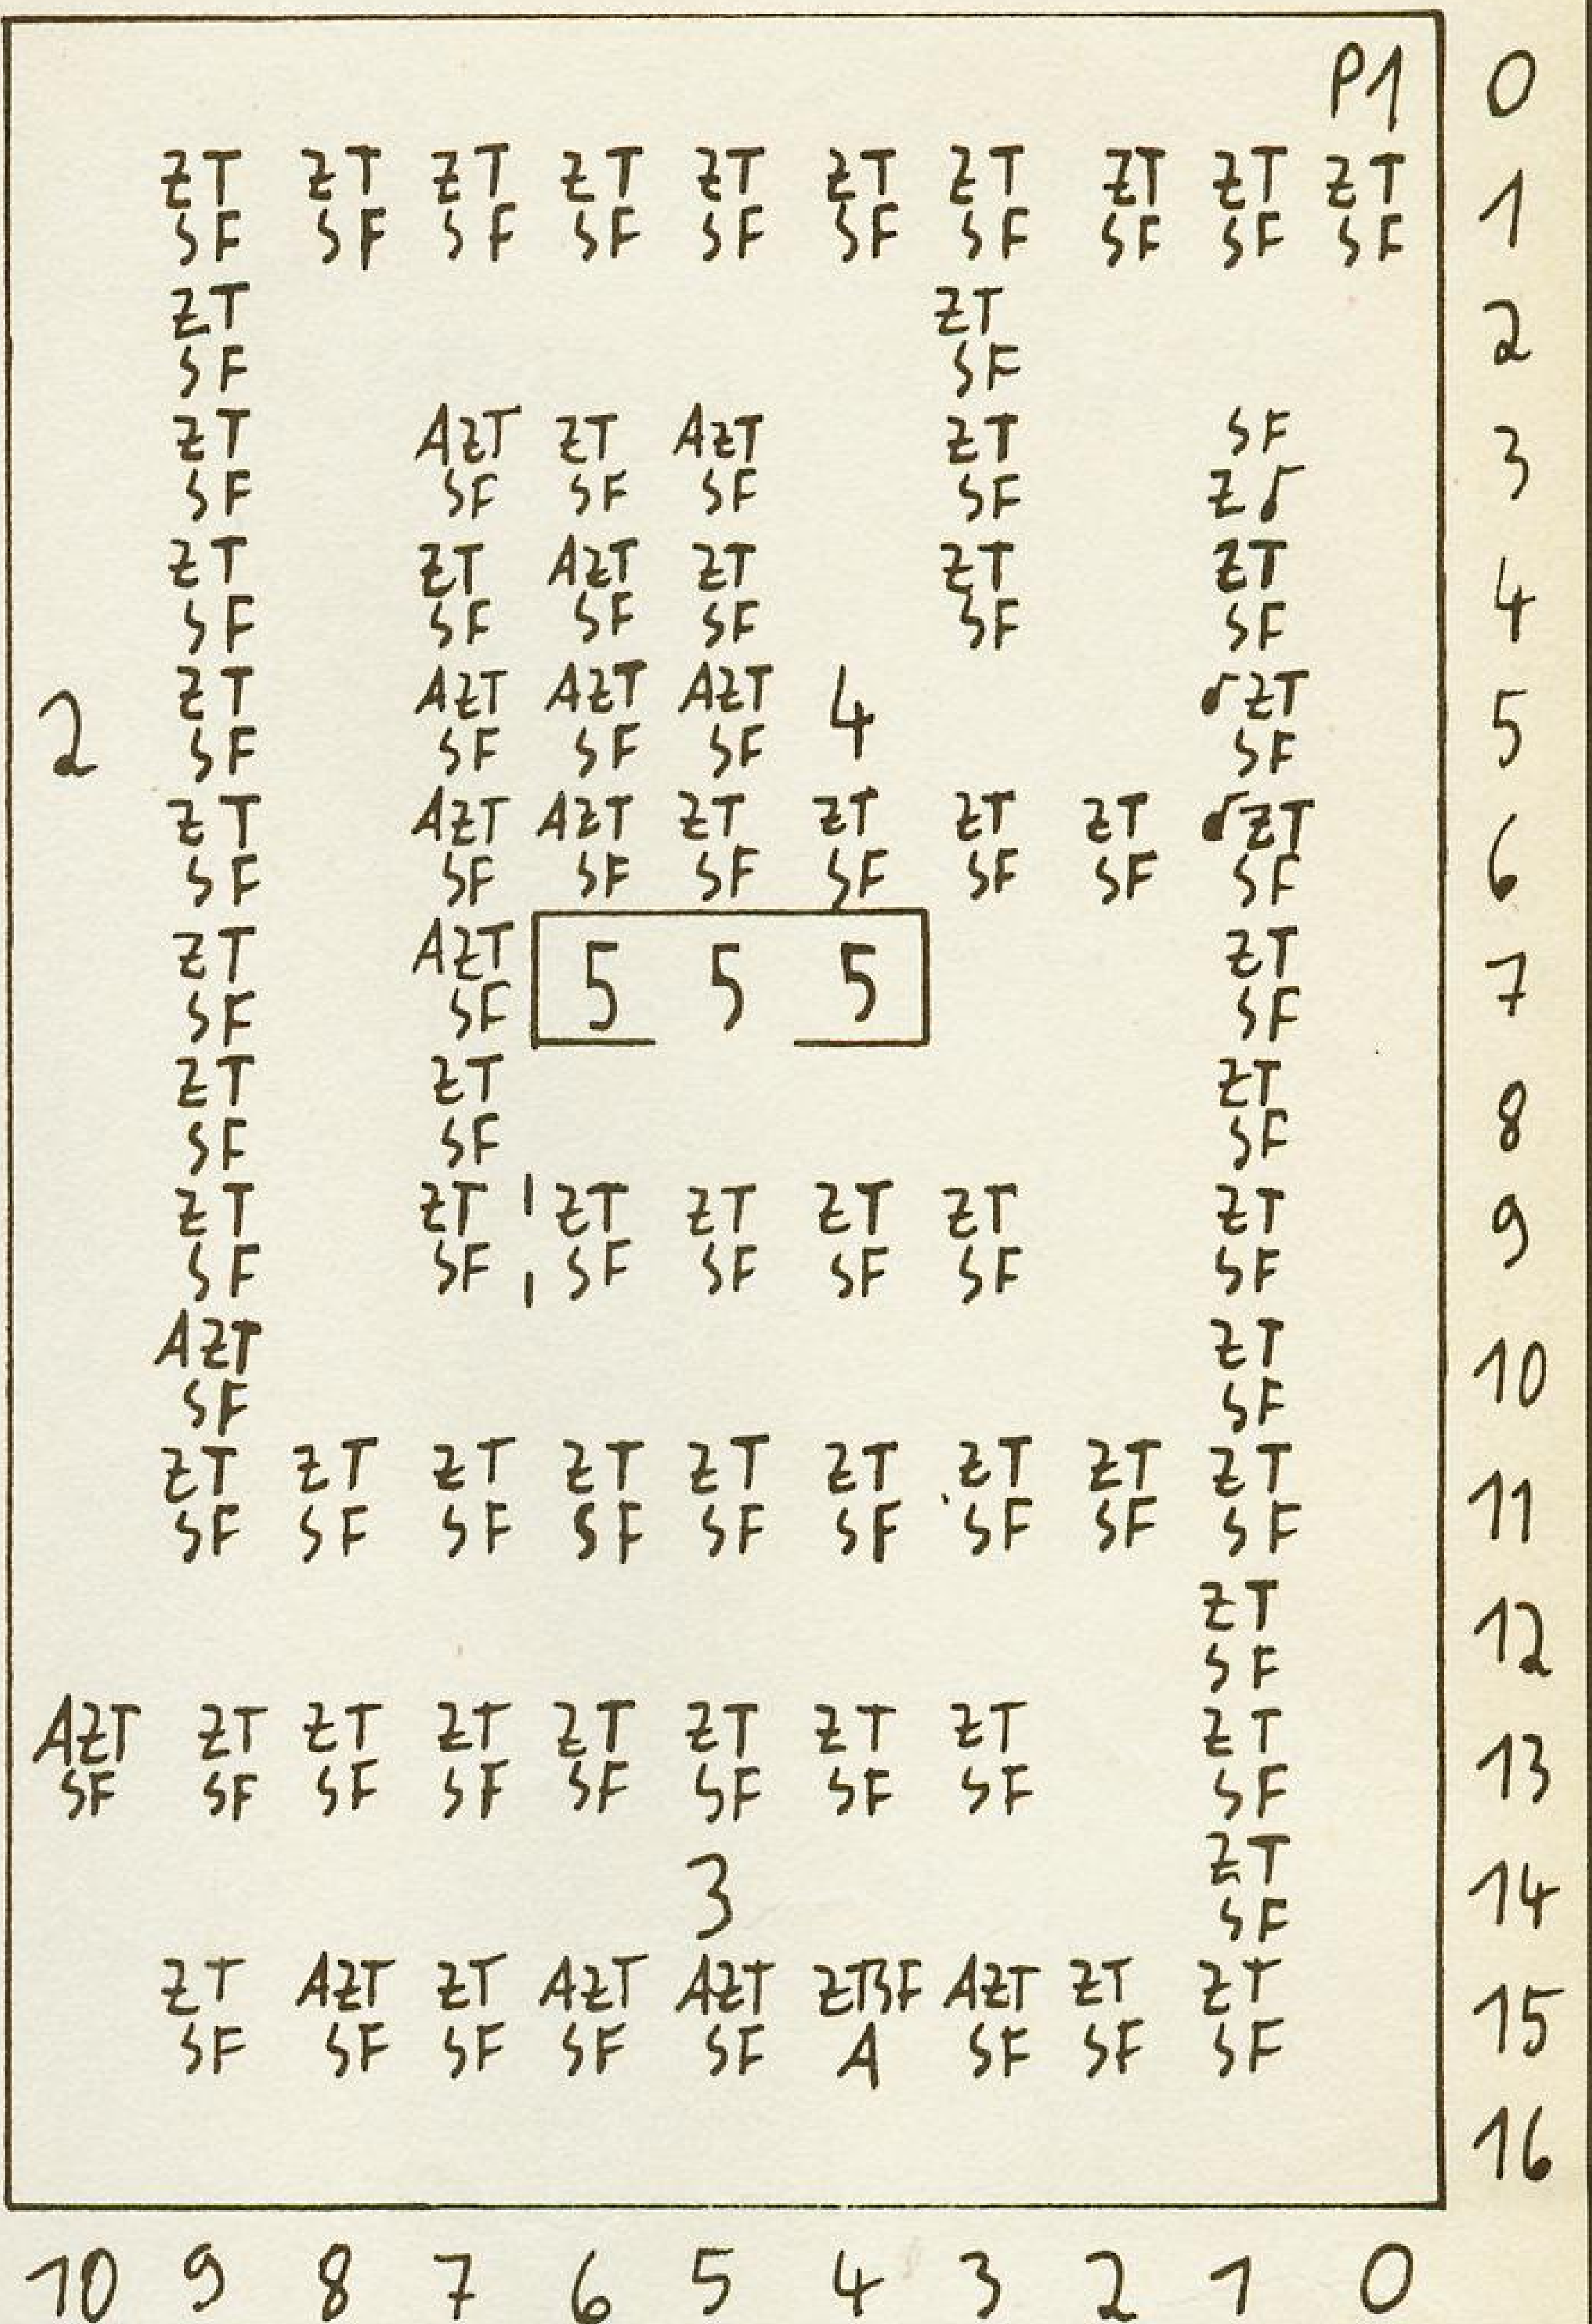 P1 0
ZT ZT ZT ZT ZT ZT ZT ZT ZT ZT 1
SF SF SF SF SF SF SF SF SF SF
ZT ZT 2
SF SF
ZT AZT ZT AZT ZT SF 3
SF SF SF SF SF Z
ZT ZT AZT ZT ZT ZT 4
SF SF SF SF SF SF
2 ZT AZT AZT AZT 4 ZT 5
SF SF SF SF SF
ZT AZT AZT ZT ZT ZT ZT ZT 6
SF SF SF SF SF SF SF SF
ZT AZT 5 5 5 ZT 7
SF SF SF
ZT ZT ZT 8
SF SF SF
ZT ZT ZT ZT ZT ZT ZT 9
SF SF SF SF SF SF SF
AZT ZT 10
SF SF
ZT ZT ZT ZT ZT ZT ZT ZT ZT 11
SF SF SF SF SF SF SF SF SF
ZT 12
SF
AZT ZT ZT ZT ZT ZT ZT ZT ZT 13
SF SF SF SF SF SF SF SF SF
3 ZT 14
SF
ZT AZT ZT AZT AZT ZTBF AZT ZT ZT 15
SF SF SF SF SF A SF SF SF
16
10 9 8 7 6 5 4 3 2 1 0